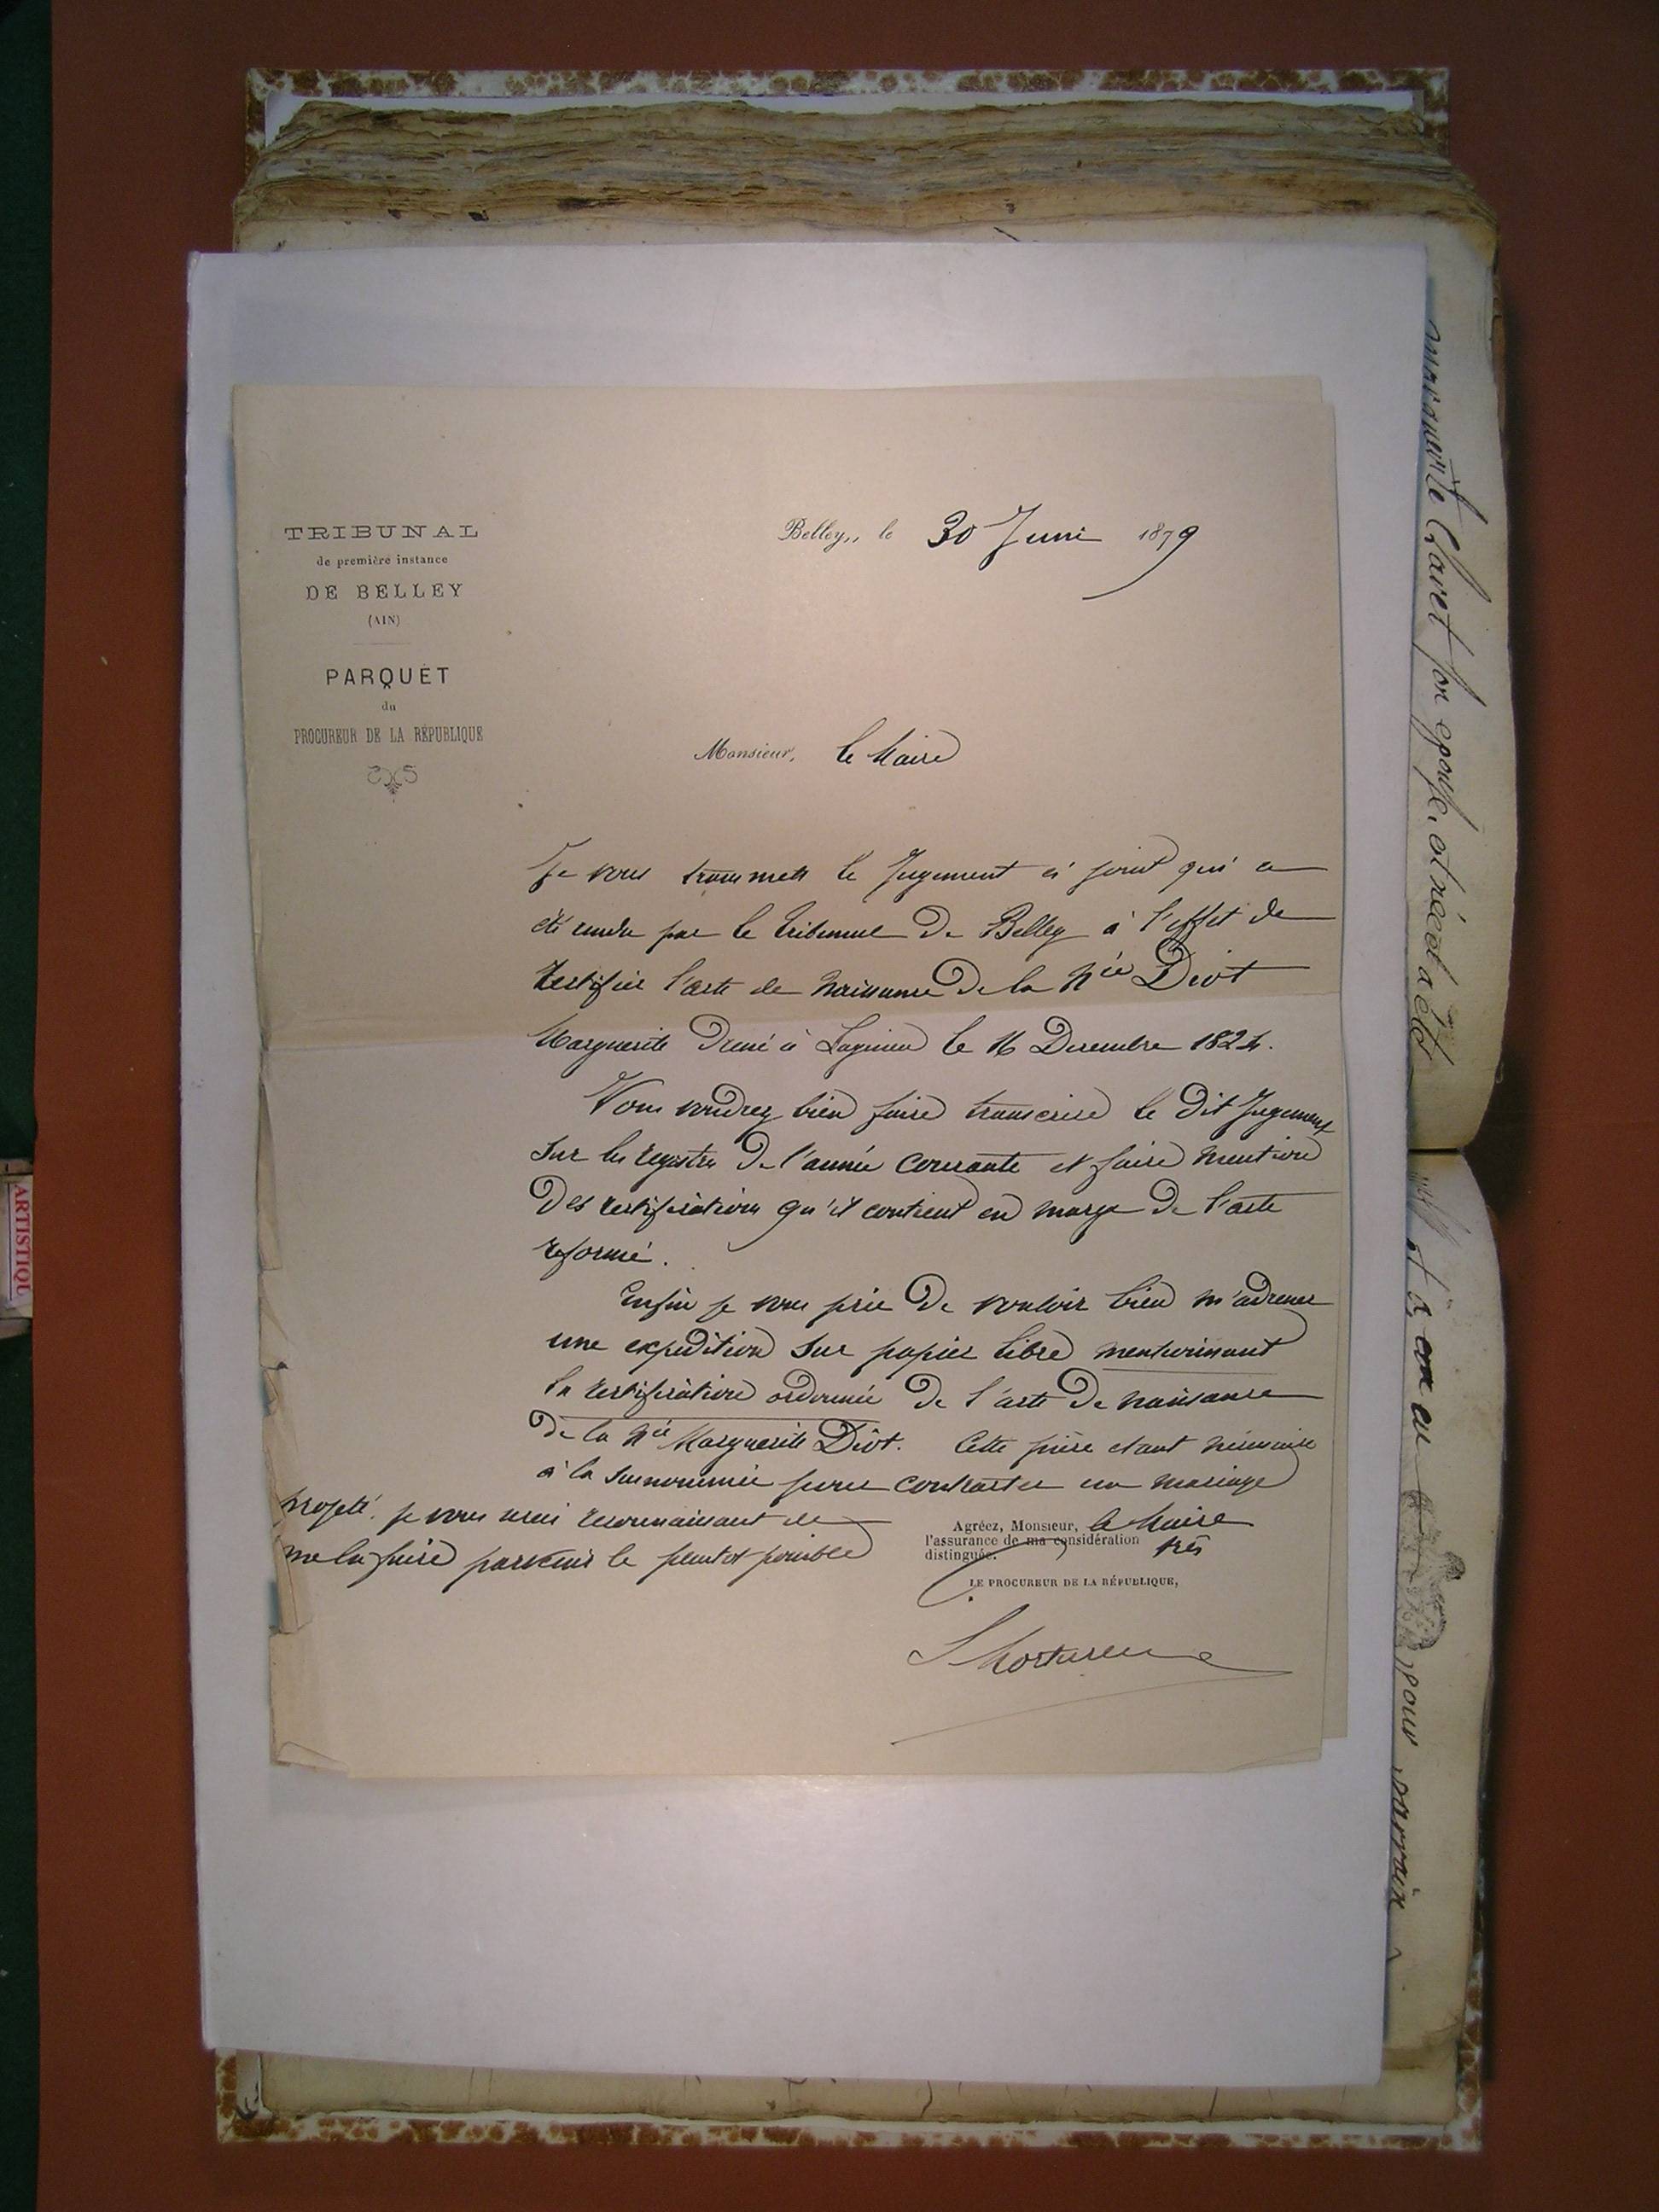 TRIBUNAL
de première instance
DE BELLEY
(AIN)
PARQUET
du
PROCUREUR DE LA RÉPUBLIQUE
Belley, le 30 Juin 1879
Monsieur, le Maire
Je vous transmets le Jugement ci joint qui a
été rendu par le tribunal de Belley à l'effet de
rectifier l'acte de naissance de la Née Diot
Marguerite née à Lagnieu le 16 Decembre 1824.
Vous voudrez bien faire transcrire le dit Jugement
sur les registres de l'année courante et faire mention
des rectifications qu'il contient en marge de l'acte
reformé.
Enfin je vous prie de vouloir bien m'adresser
une expedition sur papier libre mentionnant
la rectification ordonnée de l'acte de naissance
de la Née Marguerite Diot. Cette pièce etant nécessaire
à la susnommée pour contracter un mariage
projeté, je vous serai reconnaissant de
me la faire parvenir le plutot possible
Agréez, Monsieur, le Maire
l'assurance de ma considération très
distinguée.
LE PROCUREUR DE LA RÉPUBLIQUE,
son epouse, et néed a été
pour parrain
ARTISTIQU